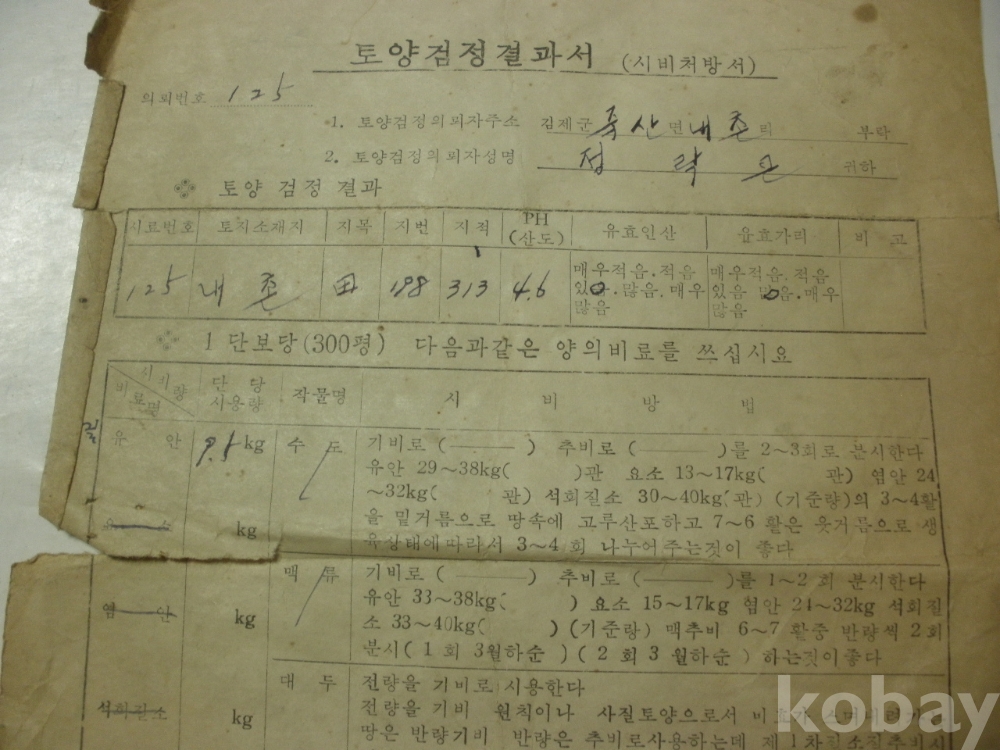 토양검정결과서 (시비처방서)
의뢰번호 125
1. 토양검정의뢰자주소 김제군 죽산면 내촌리 부락
2. 토양검정의뢰자성명 귀하
토양 검정 결과
시료번호 토지소재지 지목 지번 지적 PH (산도) 유효인산 유효가리 비 고
125 내촌 田 198 313 4.6 매우적음.적음 매우적음.적음
있음.많음.매우 있음 많음.매우
많음 많음
1 단보당 (300평) 다음과같은 양의비료를 쓰십시요
시비량 비료명 단 당 시용량 작물명 시 비 방 법
유 안 9.5 kg 수 도 기비로 ( ——— ) 추비로 ( ——— )를 2~3회로 분시한다
유안 29~38kg( )관 요소 13~17kg( 관) 염안 24
~32kg( 관) 석회질소 30~40kg(관) (기준량)의 3~4할
요 소 kg 을 밑거름으로 땅속에 고루산포하고 7~6 할은 웃거름으로 생
육상태에따라서 3~4 회 나누어주는것이 좋다
맥 류 기비로 ( ——— ) 추비로 ( ——— )를 1~2 회 분시한다
염 안 kg 유안 33~38kg( ) 요소 15~17kg 염안 24~32kg 석회질
소 33~40kg( ) (기준량) 맥추비 6~7 할중 반량씩 2회
분시 ( 1 회 3월하순 ) ( 2 회 3 월하순 ) 하는것이좋다
대 두 전량을 기비로 시용한다
석회질소 kg 전량을 기비 원칙이나 사질토양으로서
땅은 반량기비 반량은 추비로사용하는데
kobay